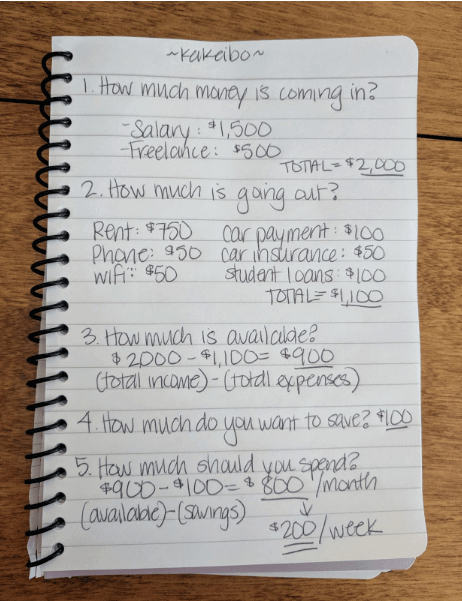 ~Kakeibo~
1. How much money is coming in?
-Salary: $1,500
-Freelance: $500
TOTAL = $2,000
2. How much is going out?
Rent: $750 car payment: $100
Phone: $50 car insurance: $50
wifi: $50 student loans: $100
TOTAL = $1,100
3. How much is available?
$2000 - $1,100 = $900
(total income) - (total expenses)
4. How much do you want to save? $100
5. How much should you spend?
$900 - $100 = $800 /month
(available) - (savings) ↓
$200/week